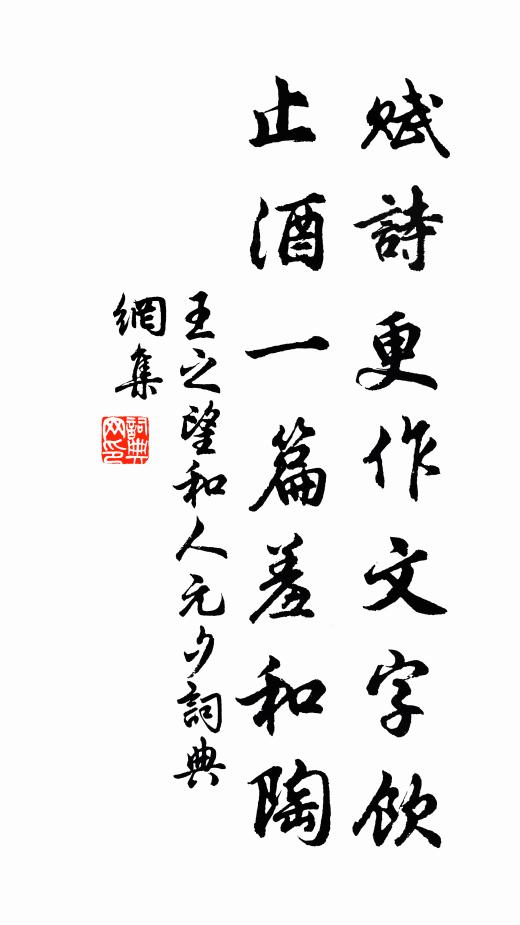 賦詩更作文字飲
止酒一篇羞和陶
王之望和人元夕詞典
網集
詞典
网印